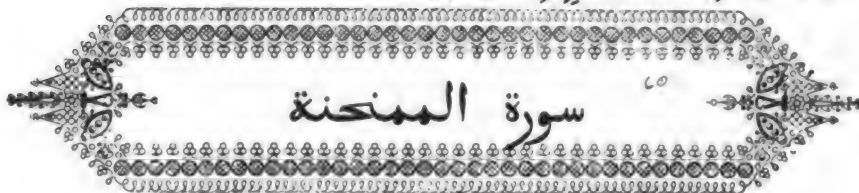 سورة الممتحنة
60